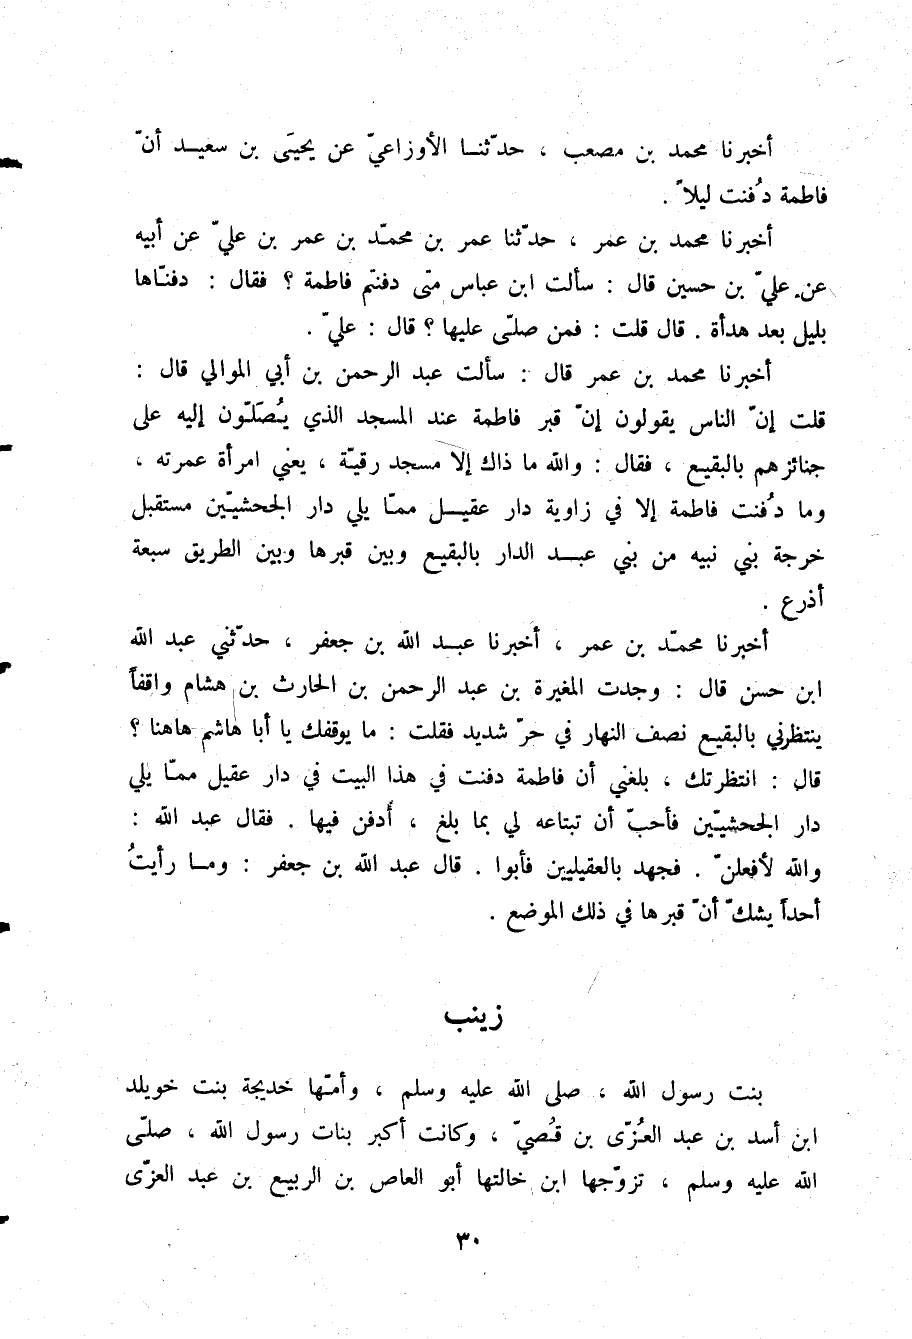 أخبرنا محمد بن مصعب ، حدّثنا الأوزاعيّ عن يحيَى بن سعيد أنّ
فاطمة دُفنت ليلاً .
أخبرنا محمد بن عمر ، حدّثنا عمر بن محمّد بن عمر بن عليّ عن أبيه
عن عليّ بن حسين قال : سألت ابن عباس متى دفنتم فاطمة ؟ فقال : دفنّاها
بليل بعد هدأة . قال قلت : فمن صلّى عليها ؟ قال : عليّ .
أخبرنا محمد بن عمر قال : سألت عبد الرحمن بن أبي الموالي قال :
قلت إنّ الناس يقولون إنّ قبر فاطمة عند المسجد الذي يُصَلّون إليه على
جنائزهم بالبقيع ، فقال : والله ما ذاك إلا مسجد رقيّة ، يعني امرأة عمرته ،
وما دُفنت فاطمة إلا في زاوية دار عقيل ممّا يلي دار الجحشيّين مستقبل
خرجة بني نبيه من بني عبد الدار بالبقيع وبين قبرها وبين الطريق سبعة
أذرع .
أخبرنا محمّد بن عمر ، أخبرنا عبد الله بن جعفر ، حدّثني عبد الله
ابن حسن قال : وجدت المغيرة بن عبد الرحمن بن الحارث بن هشام واقفاً
ينتظرني بالبقيع نصف النهار في حرّ شديد فقلت : ما يوقفك يا أبا هاشم هاهنا ؟
قال : انتظرتك ، بلغني أن فاطمة دفنت في هذا البيت في دار عقيل ممّا يلي
دار الجحشيّين فأحبّ أن تبتاعه لي بما بلغ ، أُدفن فيها . فقال عبد الله :
والله لأفعلنّ . فجهد بالعقيليين فأبوا . قال عبد الله بن جعفر : وما رأيتُ
أحداً يشكّ أنّ قبرها في ذلك الموضع .
زينب
بنت رسول الله ، صلى الله عليه وسلم ، وأمّها خديجة بنت خويلد
ابن أسد بن عبد العُزّى بن قُصيّ ، وكانت أكبر بنات رسول الله ، صلّى
الله عليه وسلم ، تزوّجها ابن خالتها أبو العاص بن الربيع بن عبد العزّى
٣٠